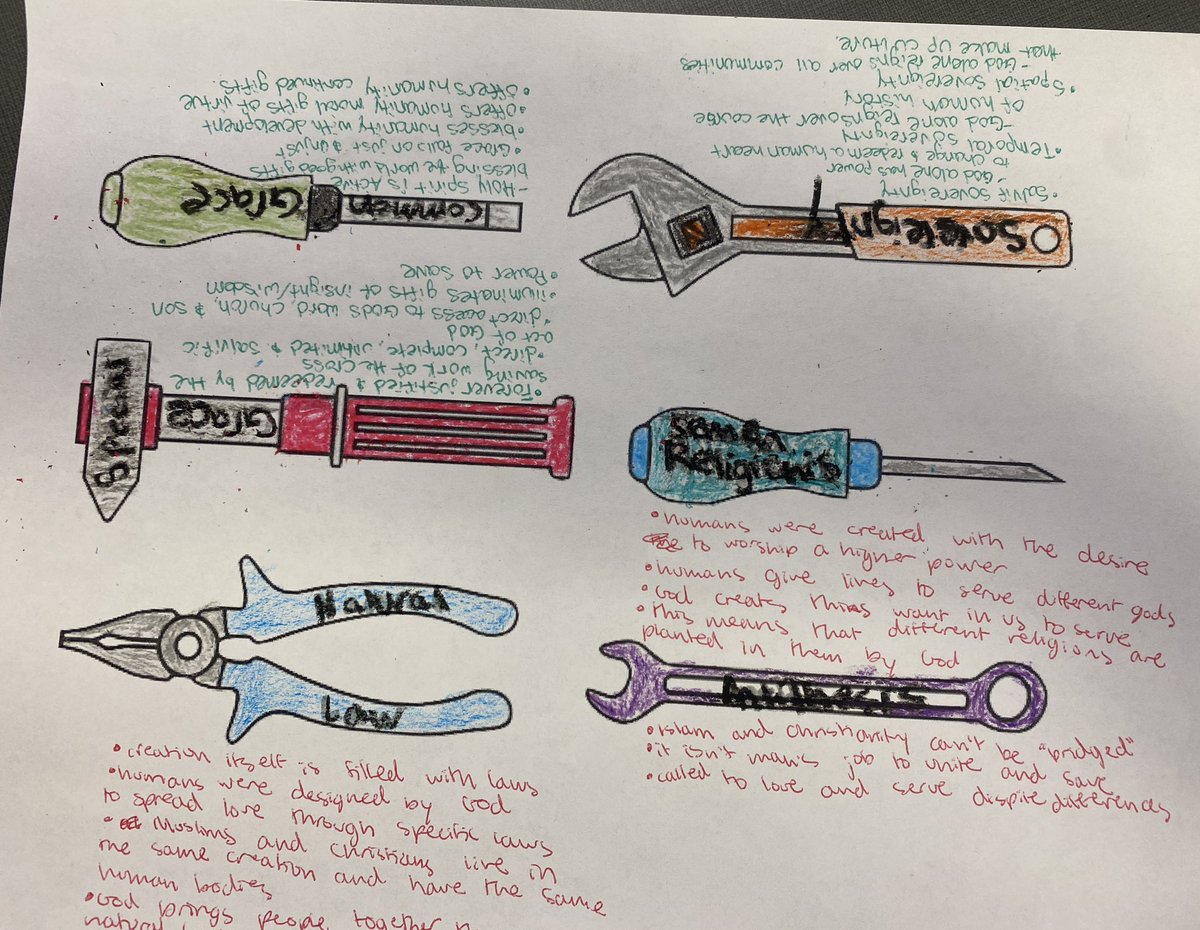 Common Grace
-Holy spirit is Active
blessing the world with good gifts
•Grace falls on just & unjust
•blesses humanity with development
•offers humanity moral gifts of virtue
•offers humanity continued gifts.
Sovereignty
•Salvific sovereignty
-God alone has power
to change & redeem a human heart
•Temporal sovereignty
-God alone reigns over the course
of human history
•Spatial sovereignty
-God alone reigns over all communities
that make up culture.
Special Grace
•Forever justified & redeemed by the
saving work of the cross
•direct, complete, unlimited & salvific
act of God
•direct access to Gods word, church, & son
•illuminates gifts of insight/wisdom
•Power to save
Semen
Religionis
•humans were created with the desire
to worship a higher power
•humans give lives to serve different gods
•God creates this want in us to serve
•this means that different religions are
planted in them by God
Natural
Law
•creation itself is filled with laws
•humans were designed by God
to spread love through specific laws
• Muslims and christians live in
the same creation and have the same
human bodies
•God brings people together
natural
Antithesis
•Islam and christianity can't be "bridged"
•it isn't man's job to unite and save
•called to love and serve dispite differences